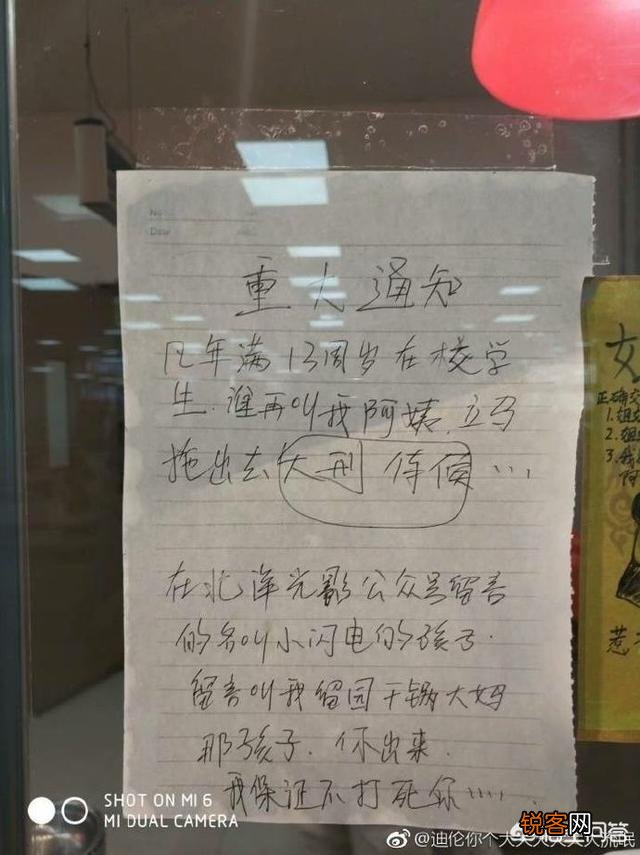 No
Date
重大通知
凡年满13周岁在校学
生.谁再叫我阿姨.立马
拖出去大刑伺候…
在北洋光影公众号留言
的名叫小闪电的孩子.
留言叫我留园干锅大妈
那孩子.你出来.
我保证不打死你……
女
正确交
1.姐
2.姐
3.我
阿
惹
SHOT ON MI 6
MI DUAL CAMERA
锐客网
@迪伦你个大